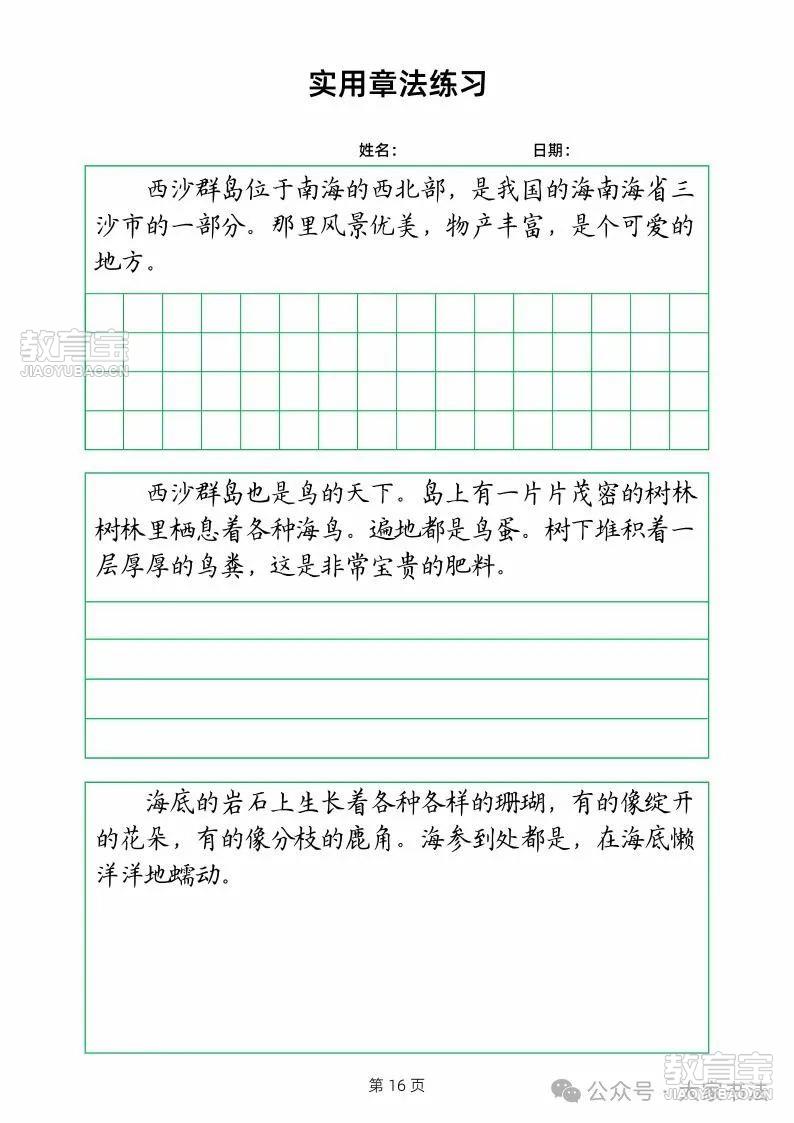 实用章法练习
姓名： 日期：
西沙群岛位于南海的西北部，是我国的海南海省三
沙市的一部分。那里风景优美，物产丰富，是个可爱的
地方。
教育宝
JIAOYUBAO.CN
西沙群岛也是鸟的天下。岛上有一片片茂密的树林
树林里栖息着各种海鸟。遍地都是鸟蛋。树下堆积着一
层厚厚的鸟粪，这是非常宝贵的肥料。
海底的岩石上生长着各种各样的珊瑚，有的像绽开
的花朵，有的像分枝的鹿角。海参到处都是，在海底懒
洋洋地蠕动。
第 16 页
教育宝
JIAOYUBAO.CN
公众号 · 大家书法